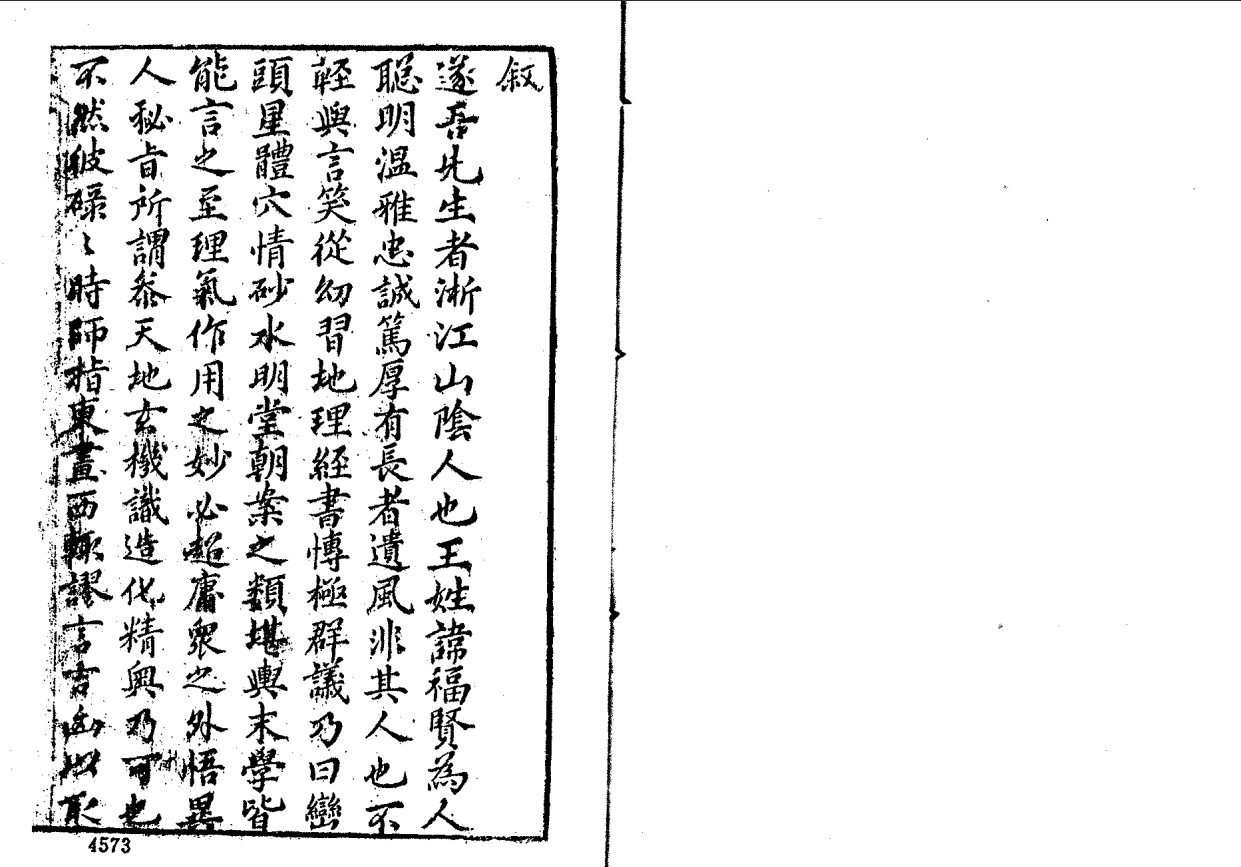 敘
遂吾先生者淅江山陰人也王姓諱福賢為人
聪明溫雅忠誠篤厚有長者遺風非其人也不
輕與言笑從幼習地理經書愽極群議乃曰巒
頭星體穴情砂水明堂朝案之類堪輿末學皆
能言之至理氣作用之妙必超庸衆之外悟異
人秘旨所謂叅天地玄機識造化精奥乃可也
不然彼碌〻時師指東畫西輒謬言吉凶以取
4573